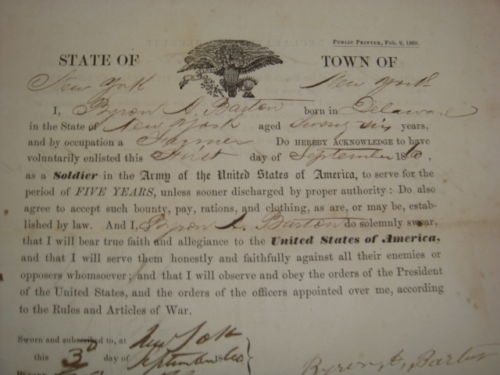 PUBLIC PRINTER, Feb. 2, 1860.
STATE OF TOWN OF
New York New York
I, Byron A. Barton born in Delaware
in the State of New York aged twenty six years,
and by occupation a Farmer Do HEREBY ACKNOWLEDGE to have
voluntarily enlisted this First day of September 1860,
as a Soldier in the Army of the United States of America, to serve for the
period of FIVE YEARS, unless sooner discharged by proper authority: Do also
agree to accept such bounty, pay, rations, and clothing, as are, or may be, estab-
lished by law. And I, Byron A. Barton do solemnly swear,
that I will bear true faith and allegiance to the United States of America,
and that I will serve them honestly and faithfully against all their enemies or
opposers whomsoever; and that I will observe and obey the orders of the President
of the United States, and the orders of the officers appointed over me, according
to the Rules and Articles of War.
Sworn and subscribed to, at New York
this 3d day of September 1860
Byron A. Barton